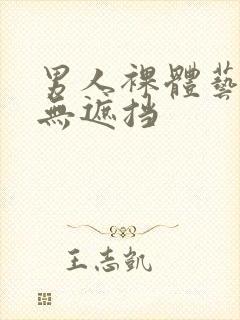 男人裸體藝
無遮挡
王志凱